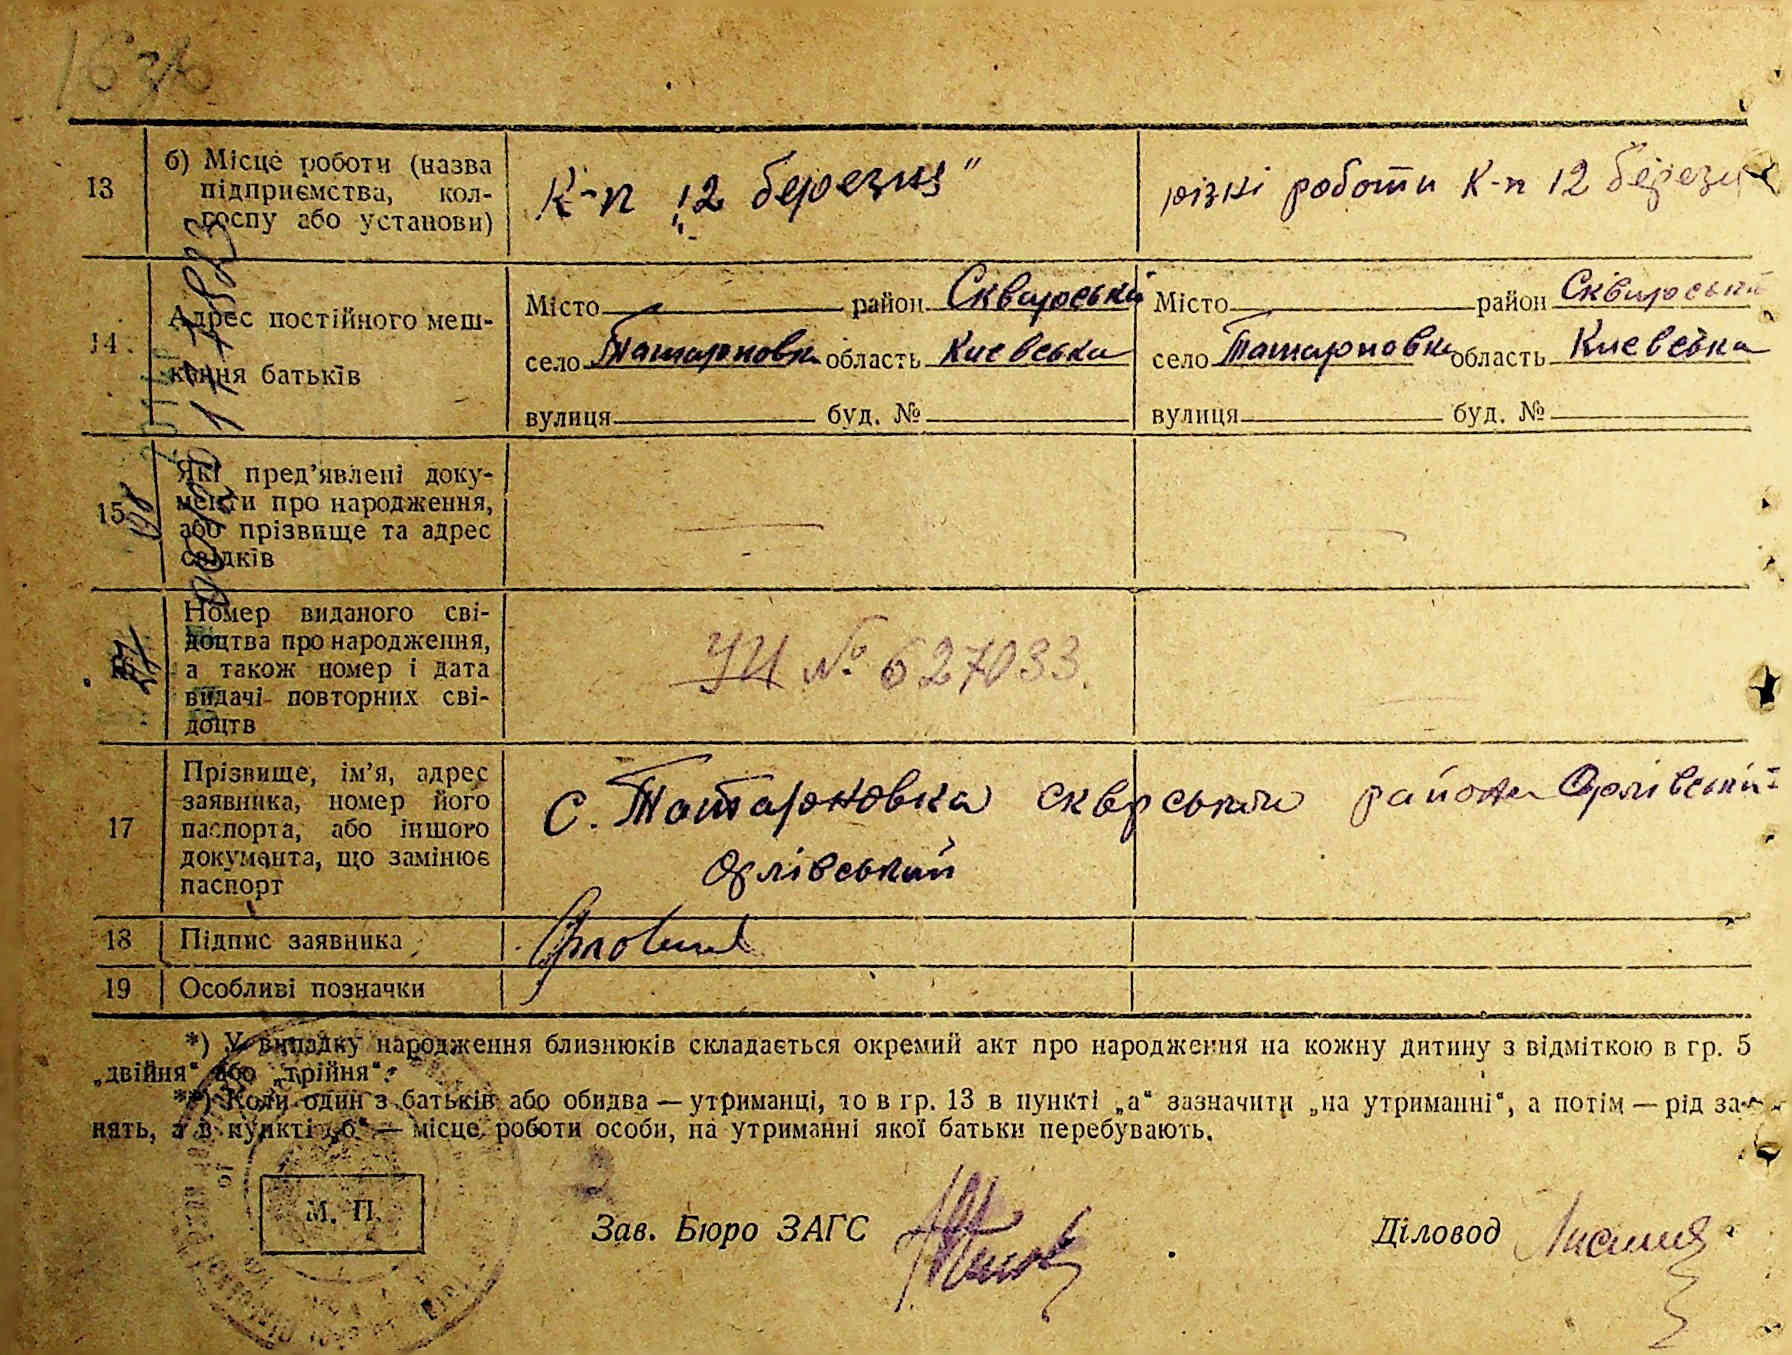 163б
13
б) Місце роботи (назва
підприємства, кол-
госпу або установи)
К-п „12 березня"
різні роботи К-п 12 березн
14
Адрес постійного меш-
кання батьків
Місто район Сквирські
село Татарновка область Києвська
вулиця буд. №
Місто район Сквирськи
село Татарновка область Києвська
вулиця буд. №
15
Які пред'явлені доку-
менти про народження,
або прізвище та адрес
свідків
Номер виданого сві-
доцтва про народження,
а також номер і дата
видачі повторних сві-
доцтв
УЦ № 627033.
17
Прізвище, ім'я, адрес
заявника, номер його
паспорта, або іншого
документа, що замінює
паспорт
С. Татарновка району Орлівський
Орлівський
18
Підпис заявника
19
Особливі позначки
*) У випадку народження близнюків складається окремий акт про народження на кожну дитину з відміткою в гр. 5
„двійня" або „трійня".
**) Коли один з батьків або обидва — утриманці, то в гр. 13 в пункті „а" зазначити „на утриманні", а потім — рід за-
нять, а в пункті „б" — місце роботи особи, на утриманні якої батьки перебувають.
М. П.
Зав. Бюро ЗАГС
Діловод